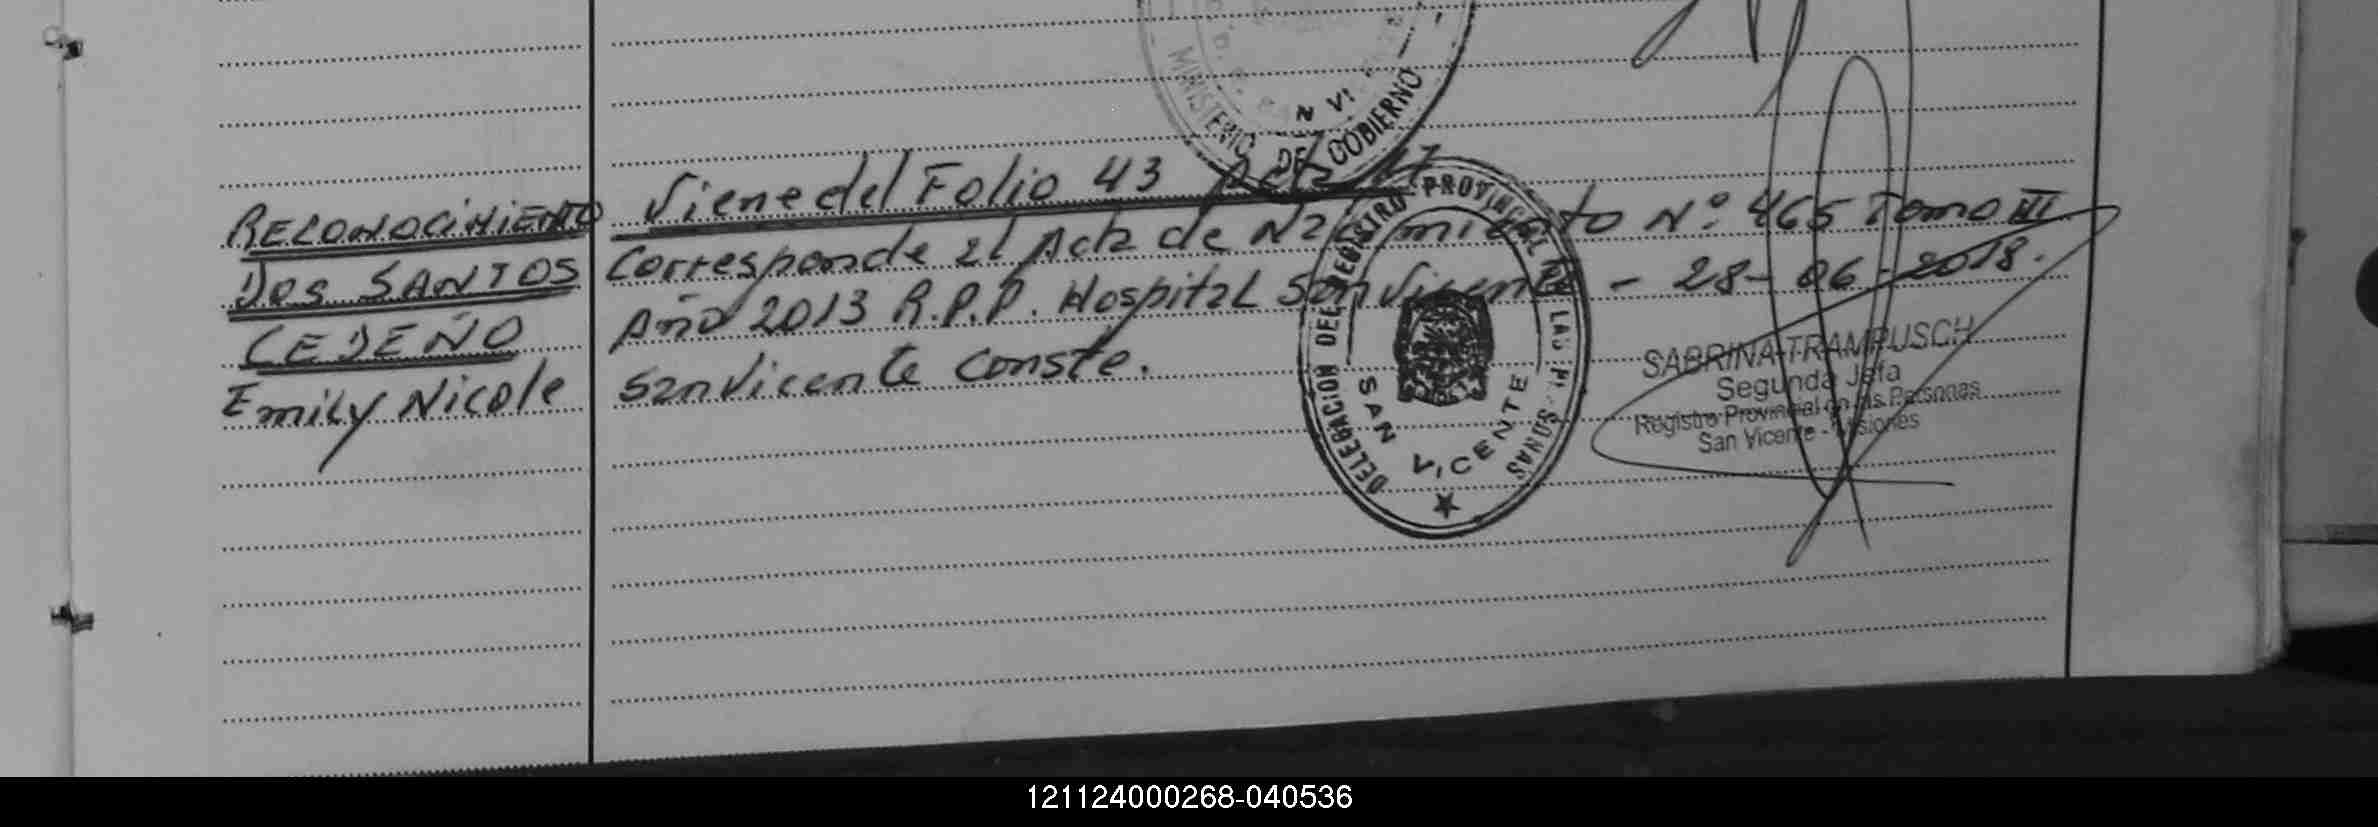 MINISTERIO DE GOBIERNO
RECONOCIMIENTO
DOS SANTOS
CEDEÑO
Emily Nicole
Viene del Folio 43 Acta
Corresponde al Acta de Nacimiento Nº 465 Tomo III
Año 2013 R.P.P. Hospital San Vicente - 28-06-2018.
San Vicente Conste.
DELEGACION DEL REGISTRO PROVINCIAL DE LAS PERSONAS
SAN VICENTE
SABRINA TRAMPUSCH
Segunda Jefa
Registro Provincial de las Personas
San Vicente - Misiones
121124000268-040536